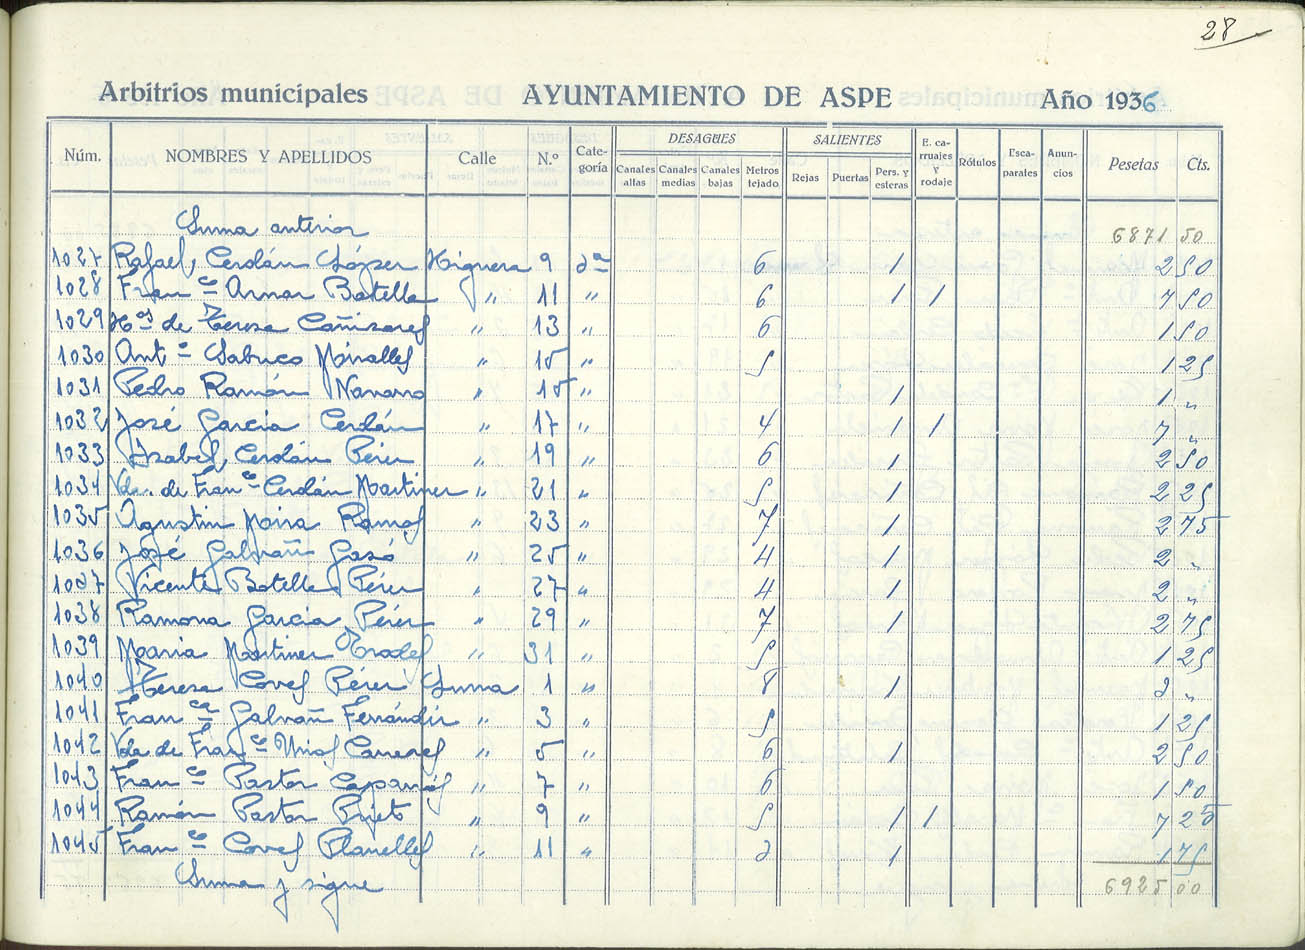 28
Arbitrios municipales AYUNTAMIENTO DE ASPE Año 1936
Núm. NOMBRES Y APELLIDOS Calle N.º Categoría DESAGÜES Canales altas Canales medias Canales bajas Metros tejado SALIENTES Rejas Puertas Pers. y esteras E. carruajes y rodaje Rótulos Escaparates Anuncios Pesetas Cts.
Suma anterior 6871 50
1027 Rafael Cerdán López Higuera 9 2ª 6 1 2 50
1028 Franco Arnar Botella " 11 " 6 1 1 7 50
1029 Hos de Teresa Cañizares " 13 " 6 1 50
1030 Anto Sabuco Miralles " 15 " 5 1 25
1031 Pedro Ramón Navarro " 15 " 1 1 "
1032 José García Cerdán " 17 " 4 1 1 7 "
1033 Isabel Cerdán Pérez " 19 " 6 1 2 50
1034 Vda. de Franco Cerdán Martinez " 21 " 5 1 2 25
1035 Agustin Mira Ramos " 23 " 7 1 2 75
1036 José Galvañ Gasó " 25 " 4 1 2 "
1037 Vicente Botella Pérez " 27 " 4 1 2 "
1038 Ramona García Pérez " 29 " 7 1 2 75
1039 Maria Martinez Prades " 31 " 5 1 25
1040 Teresa Coves Pérez Luna 1 " 8 1 3 "
1041 Franca Galvañ Ferrándiz " 3 " 5 1 25
1042 Vda de Franco Cameres " 5 " 6 1 2 50
1043 Franco Pastor " 7 " 6 1 50
1044 Ramón Pastor Prieto " 9 " 5 1 1 7 25
1045 Franco Coves Planelles " 11 " 3 1 1 75
Suma y sigue 6925 00